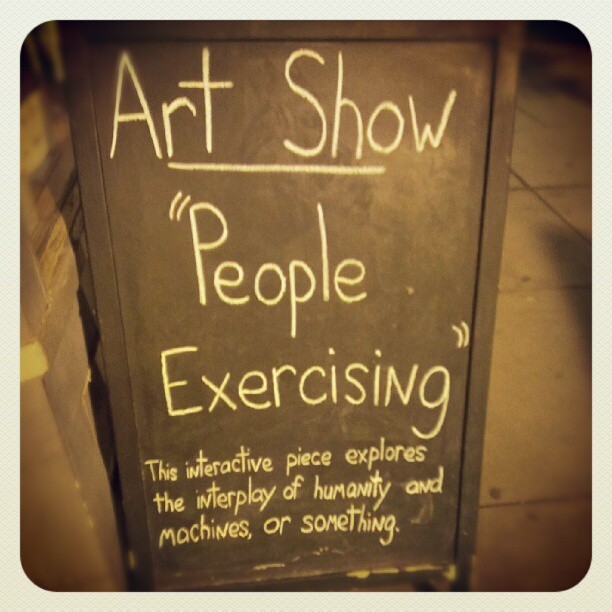 Art Show
"People
Exercising"
This interactive piece explores
the interplay of humanity and
machines, or something.